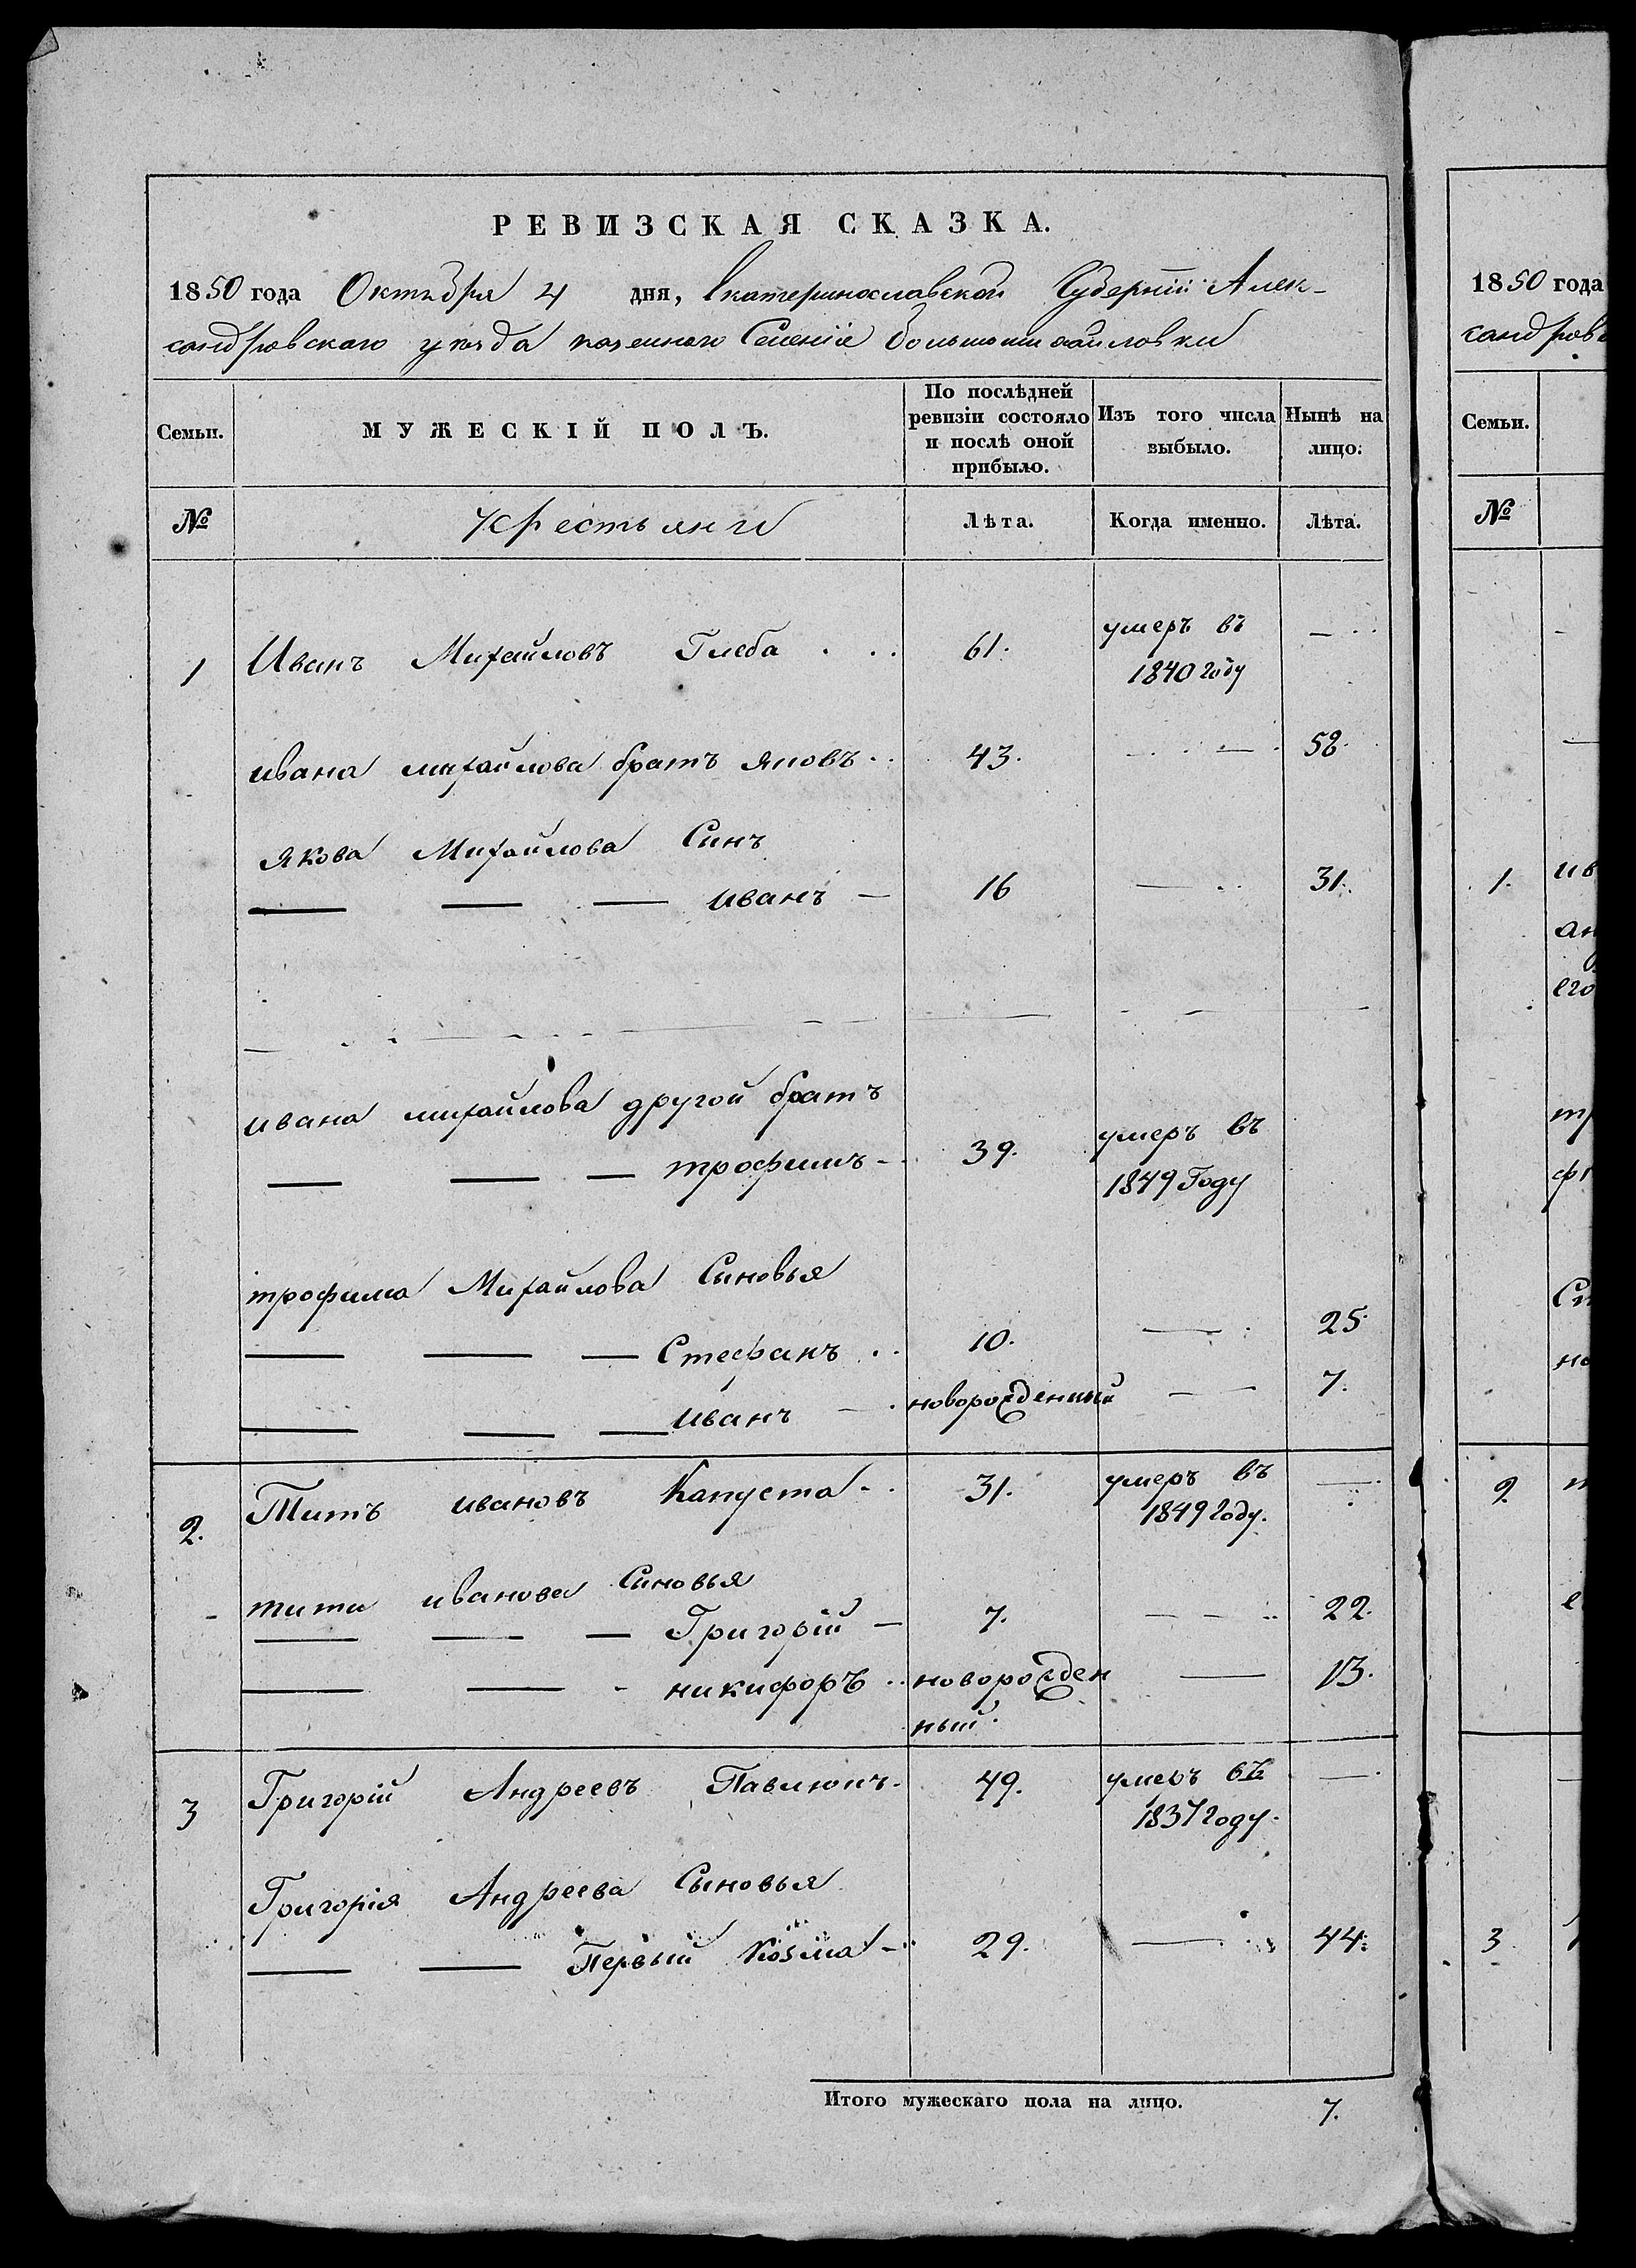 РЕВИЗСКАЯ СКАЗКА.
1850 года Октября 4 дня, Екатеринославской Губерніи Алек-
сандровскаго уезда казеннаго Селенія большемихайловки
Семьи. МУЖЕСКІЙ ПОЛЪ. По послѣдней ревизіи состояло и послѣ оной прибыло. Изъ того числа выбыло. Нынѣ на лицо.
№ Крестьяни Лѣта. Когда именно. Лѣта.
1 Иванъ Михайловъ Глеба 61. умеръ въ —
1840 году
ивана михайлова братъ яковъ 43. — 58.
якова Михайлова Синъ
— — — иванъ — 16 — 31.
ивана михайлова другой братъ
— — — трофимъ - 39. умеръ въ
1849 Году
трофима Михайлова Синовья
— — — Стефанъ 10. — 25.
— — — иванъ новорожденный — 7.
2. Титъ ивановъ Капуста - 31. умеръ въ —
1849 году.
тита иванова Синовья
— — — Григорій — 7. — 22.
— — - никифоръ новорожден — 13.
ный.
3 Григорій Андреевъ Павлюкъ - 49. умеръ въ —
1837 году.
Григорія Андреева Сыновья
— — Первый Козма - 29. — 44.
Итого мужескаго пола на лицо. 7.
1850 года
сандров
Семьи.
№
1. ив
его
2.
3